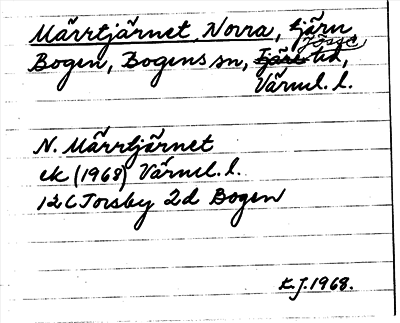 Märrtjärnet Norra, tjärn
Bogen, Bogens sn, Jösse hd,
Värml. l.
N. Märrtjärnet
ek (1968) Värml. l.
12C Torsby 2d Bogen
K.J. 1968.